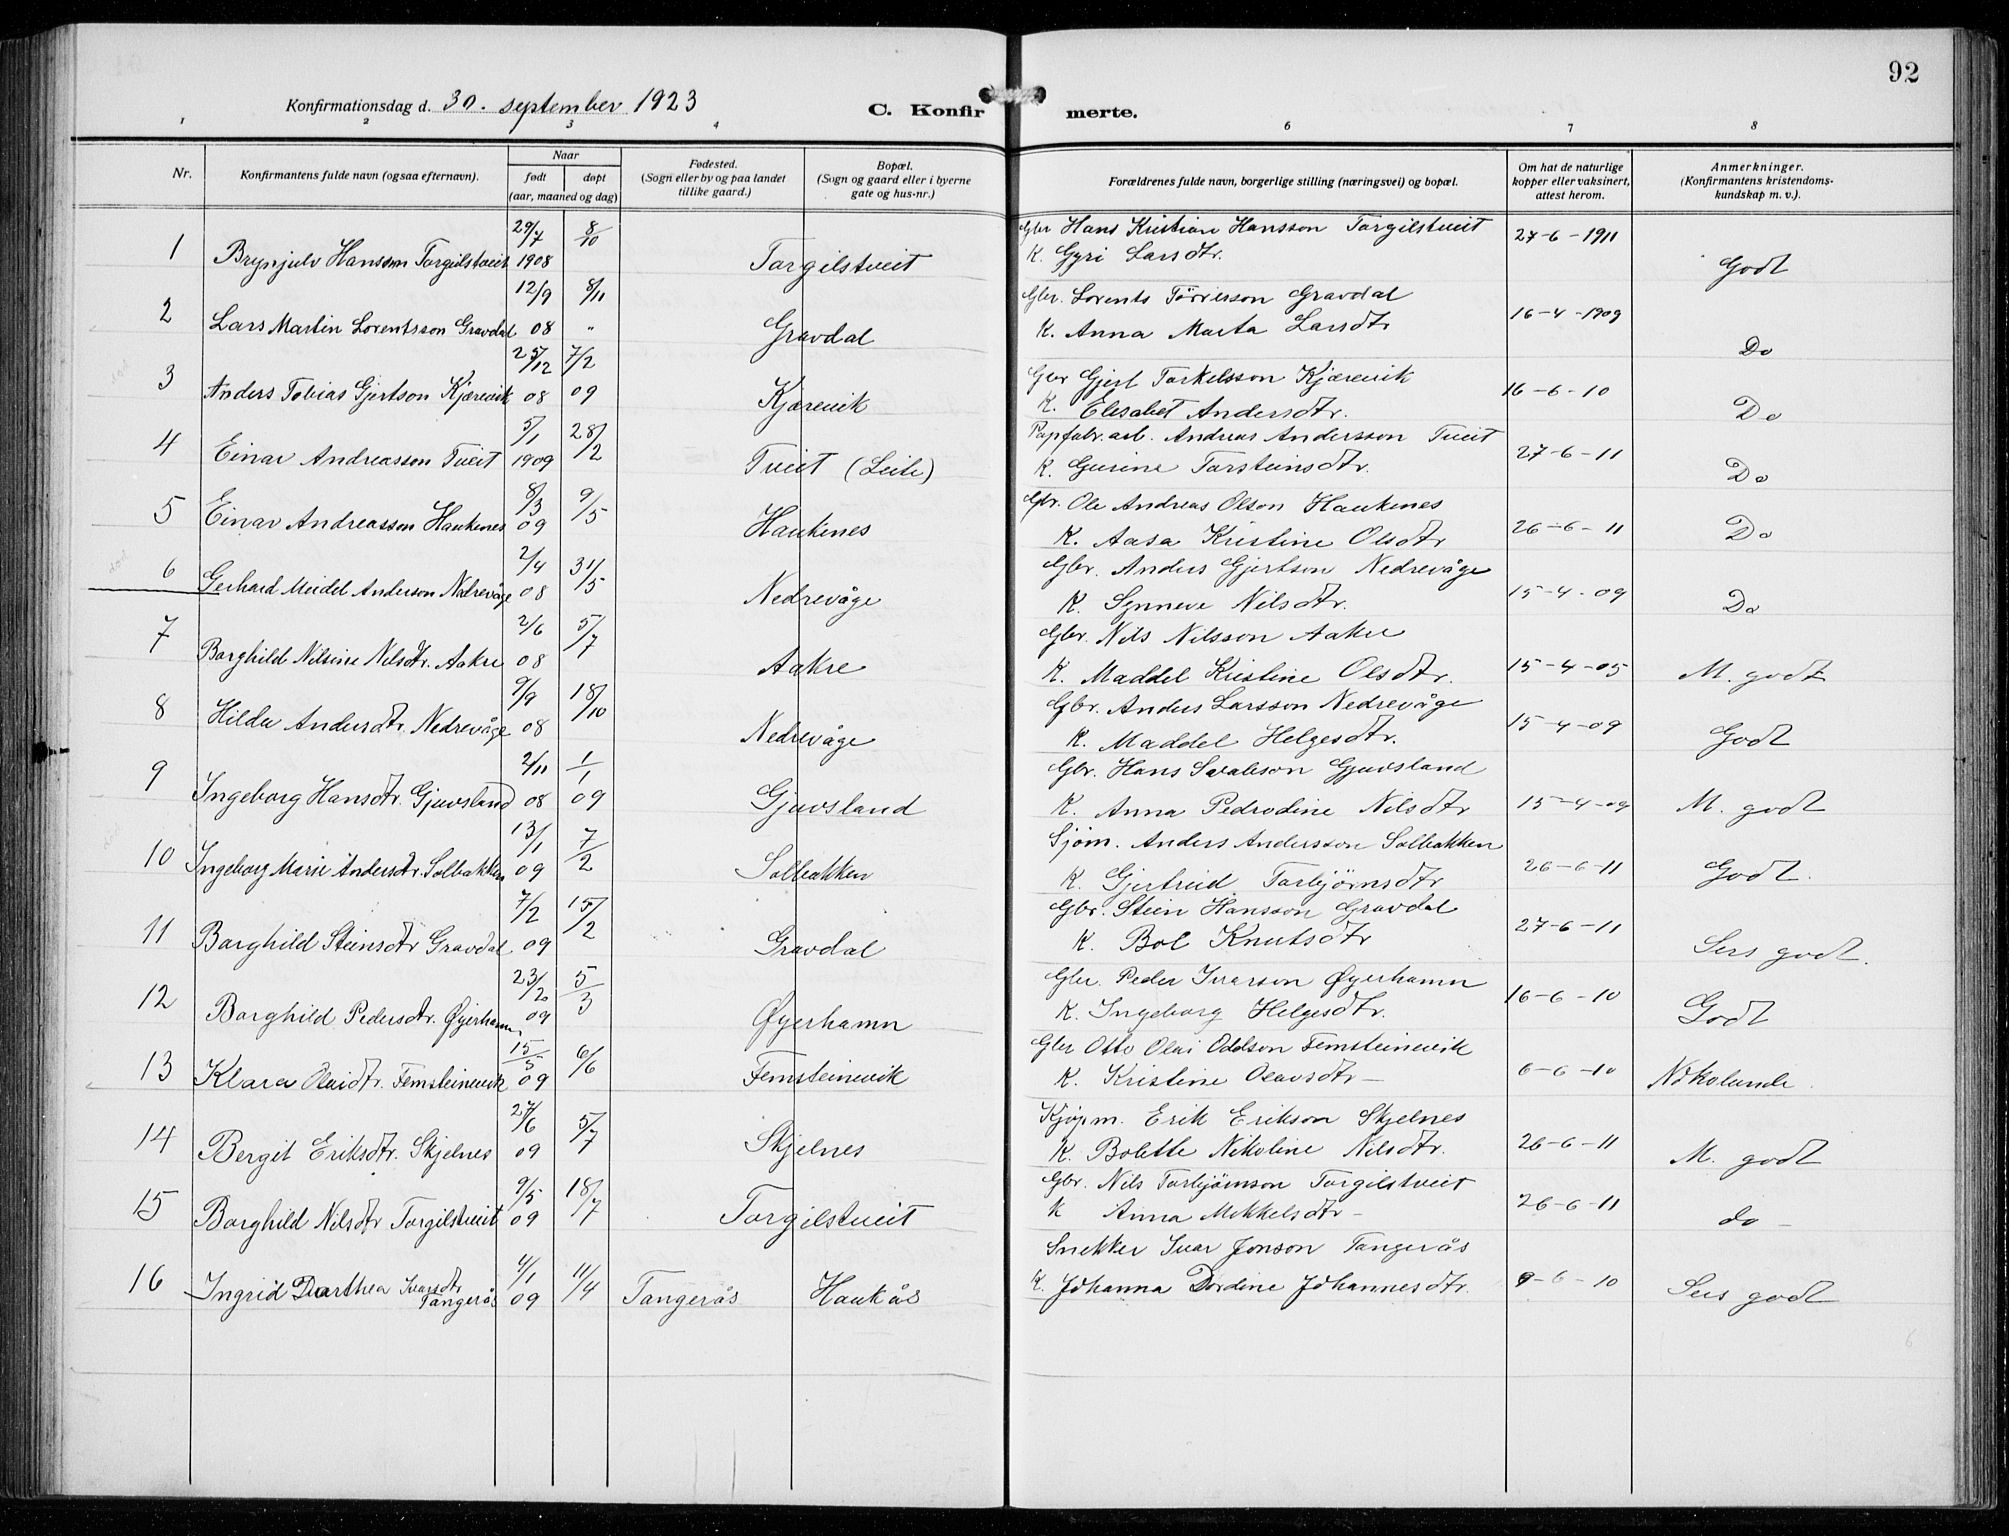 92
Konfirmationsdag d. 30. september 1923
C. Konfirmerte.
1 2 3 4 6 7 8
Nr.
Konfirmantens fulde navn (ogsaa efternavn).
Naar
født døpt
(aar, maaned og dag)
Fødested.
(Sogn eller by og paa landet
tillike gaard.)
Bopæl.
(Sogn og gaard eller i byerne
gate og hus-nr.)
Forældrenes fulde navn, borgerlige stilling (næringsvei) og bopæl.
Om hat de naturlige
kopper eller vaksinert,
attest herom.
Anmerkninger.
(Konfirmantens kristendoms-
kundskap m. v.).
29/7 8/10 Gbr Hans Kristian Hansson Torgilstveit 27-6-1911
1 Brynjulv Hansson Torgilstveit 1908 Torgilstveit K. Gyri Larsdtr. Godt
12/9 8/11 Gbr. Lorents Gravdal 16-4-1909
2 Lars Martin Lorentsson Gravdal 08 " Gravdal K. Anna Marta Larsdtr Do
25/12 7/2 Gbr Gjert Torkelsson Kjærevik 16-6-10
3 Anders Tobias Gjertson Kjærevik 08 09 Kjærevik K. Elisabet Andersdtr. Do
5/1 28/2 Papfabr. arb. Andreas Andersson Tveit 27-6-11
4 Einar Andreasson Tveit 1909 Tveit (Leite) K. Gurine Torsteinsdtr. Do
8/3 9/5 Gbr. Ole Andreas Olson Haukenes
5 Einar Andreasson Haukenes 09 Haukenes K. Aasa Kristine Olsdtr 26-6-11 Do
2/4 31/5 Gbr. Anders Gjertson Nedrevåge
6 Gerhard Meidel Anderson Nedrevåge 08 Nedrevåge K. Synneve Nilsdtr. 15-4-09 Do
2/6 5/7 Gbr. Nils Nilsson Aakre
7 Borghild Nilsine Nilsdtr. Aakre 08 Aakre K. Maddel Kristine Olsdtr. 15-4-05 M. godt
9/9 18/10 Gbr. Anders Larsson Nedrevåge
8 Hilda Andersdtr. Nedrevåge 08 Nedrevåge K. Maddel Helgesdtr. 15-4-09 Godt
2/11 1/1 Gbr. Hans Gjuvsland
9 Ingeborg Hansdtr. Gjuvsland 08 09 Gjuvsland K. Anna Pedrodine Nilsdtr 15-4-09 M. godt
13/1 7/2 Sjøm. Anders Andersson Solbakken
10 Ingeborg Marie Andersdtr. Solbakken 09 Solbakken K. Gjertrud Torbjørnsdtr 26-6-11 Godt.
7/2 15/2 Gbr. Stein Hansson Gravdal
11 Borghild Steinsdtr Gravdal 09 Gravdal K. Bol Knutsdtr 27-6-11 Sers godt.
23/2 5/3 Gbr. Peder Ivarson Øyerhamn
12 Borghild Pedersdtr. Øyerhamn 09 Øyerhamn K. Ingeborg Helgesdtr. 16-6-10 Godt
15/5 6/6 Gbr Otto Olai Oddson Femsteinevik
13 Klara Olaidtr. Femsteinevik 09 Femsteinevik K. Kristine Olavsdtr - 6-6-10 Nokolunde.
27/6 5/7 Kjøpm. Erik Erikson Skjelnes
14 Bergit Eriksdtr. Skjelnes 09 Skjelnes K. Bolette Nikoline Nilsdtr. 26-6-11 M. godt
9/5 18/7 Gbr. Nils Torbjørnson Torgilstveit
15 Borghild Nilsdtr Torgilstveit 09 Torgilstveit K Anna Mikkelsdtr - 26-6-11 do -
4/1 11/4 Snekker Ivar Jonson Tangerås
16 Ingrid Dorthea Ivarsdtr Tangerås 09 Tangerås Haukås K. Johanna Dordine Johannesdtr. 9-6-10 Sers godt
6